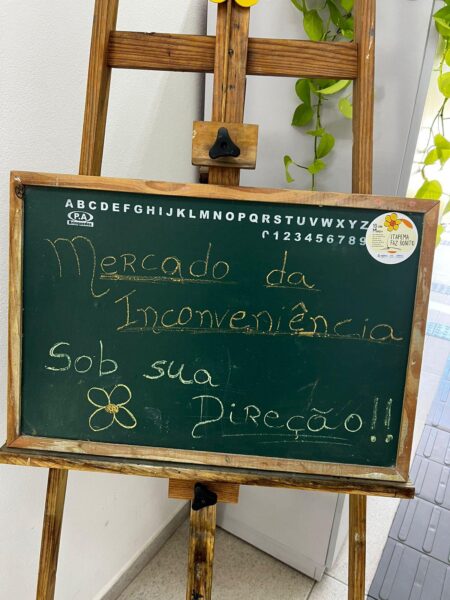 ABCDEFGHIJKLMNOPQRSTUVWXYZ
P.A
0123456789
ITAPEMA
FAZ BONITO
Mercado da
Inconveniência
Sob sua
Direção!!